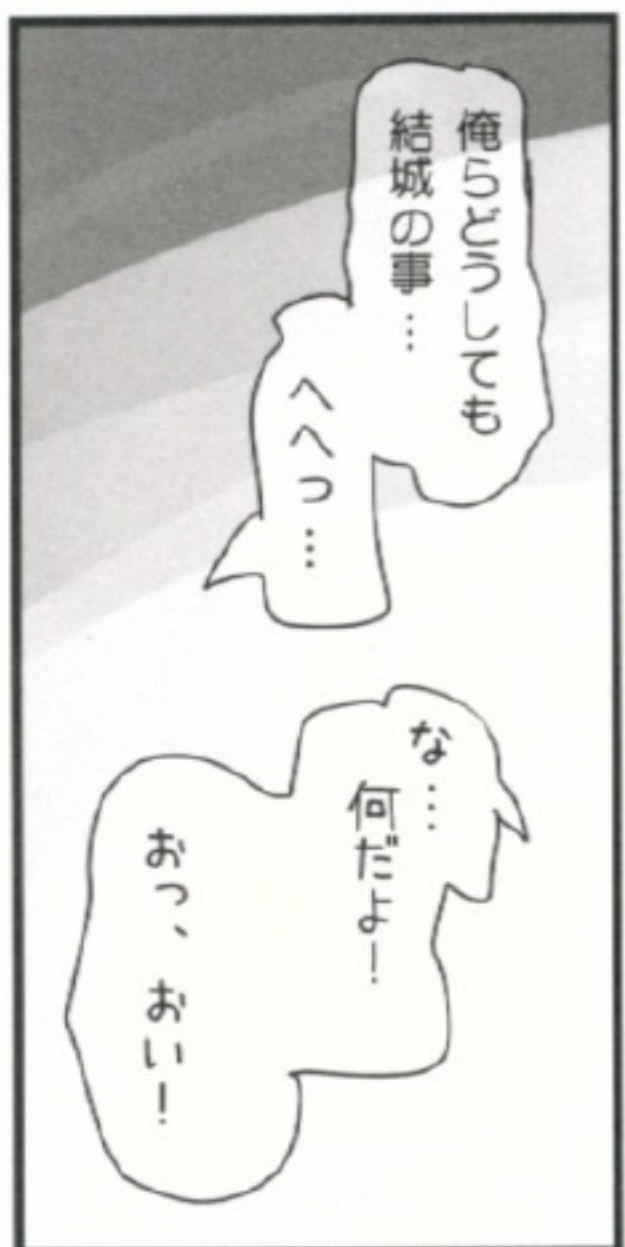 俺らどうしても
結城の事…
へへっ…
な…
何だよ!
おっ、おい!